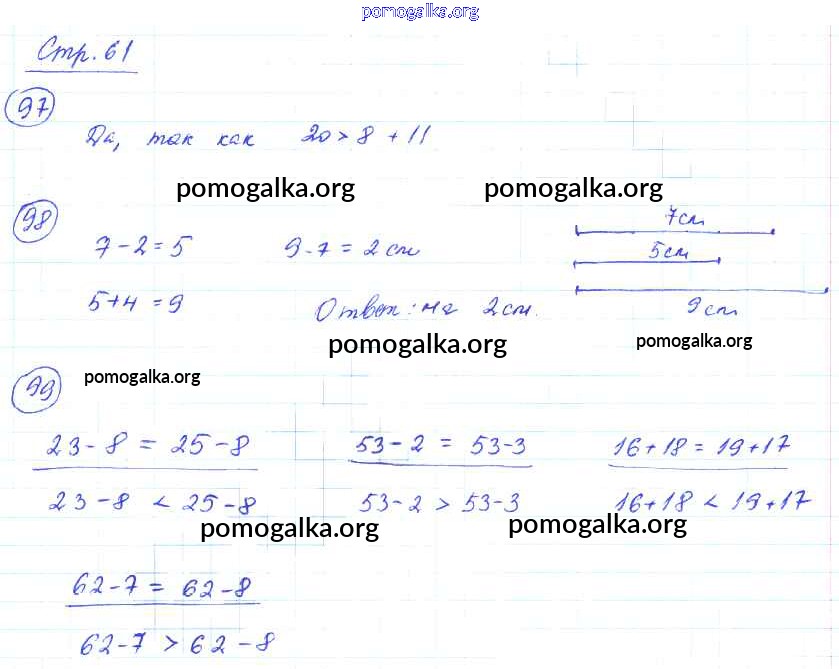 pomogalka.org
Стр. 61
97
Да, так как 20 > 8 + 11
pomogalka.org pomogalka.org
98
7 - 2 = 5 9 - 7 = 2 см 7см
5см
5 + 4 = 9 Ответ: на 2 см. 9 см
pomogalka.org pomogalka.org
99 pomogalka.org
23 - 8 = 25 - 8 53 - 2 = 53 - 3 16 + 18 = 19 + 17
23 - 8 < 25 - 8 53 - 2 > 53 - 3 16 + 18 < 19 + 17
pomogalka.org pomogalka.org
62 - 7 = 62 - 8
62 - 7 > 62 - 8